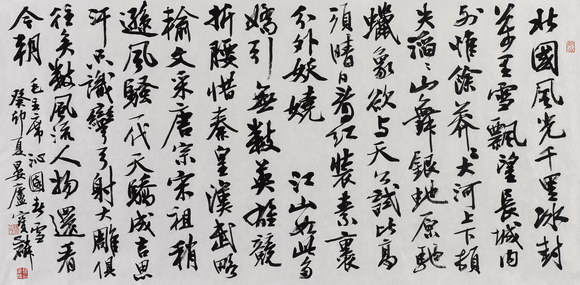 北國風光千里冰封
萬里雪飄望長城内
外惟餘莽〻大河上下頓
失滔〻山舞銀蛇原馳
蠟象欲与天公試比高
須晴日看紅裝素裹
分外妖嬈 江山如此多
嬌引無數英雄競
折腰惜秦皇漢武略
輸文采唐宗宋祖稍
遜風騷一代天驕成吉思
汗只識彎弓射大雕俱
往矣數風流人物還看
今朝
毛主席沁園春雪
癸卯夏